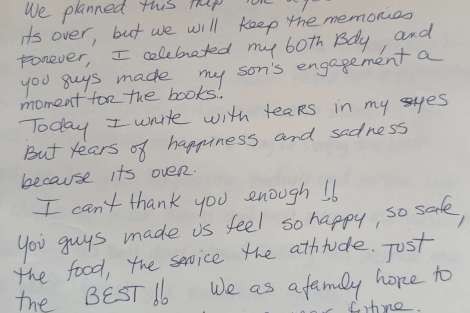 We planned this trip
its over, but we will keep the memories
Forever, I celebrated my 60th Bdy, and
you guys made my son's engagement a
moment for the books.
Today I write with tears in my eyes
But tears of happiness and sadness
because its over.
I can't thank you enough !!
You guys made us feel so happy, so safe,
the food, the service the attitude. Just
the BEST !! We as a family hope to
future.